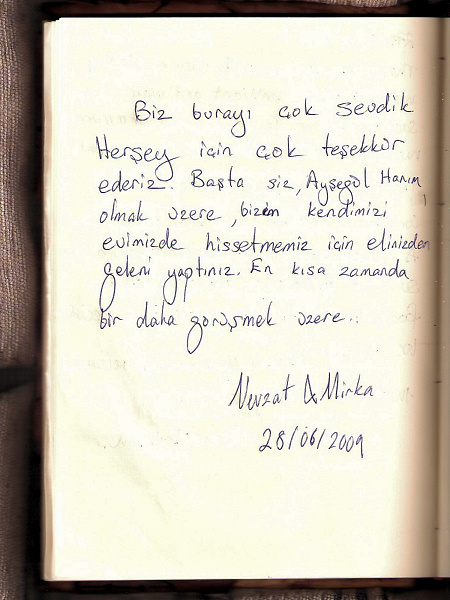 Biz burayı çok sevdik
Herşey için çok teşekkür
ederiz. Başta siz, Ayşegül Hanım
olmak üzere, bizim kendimizi
evimizde hissetmemiz için elinizden
geleni yaptınız. En kısa zamanda
bir daha görüşmek üzere..
Nevzat & Mirka
28/06/2009